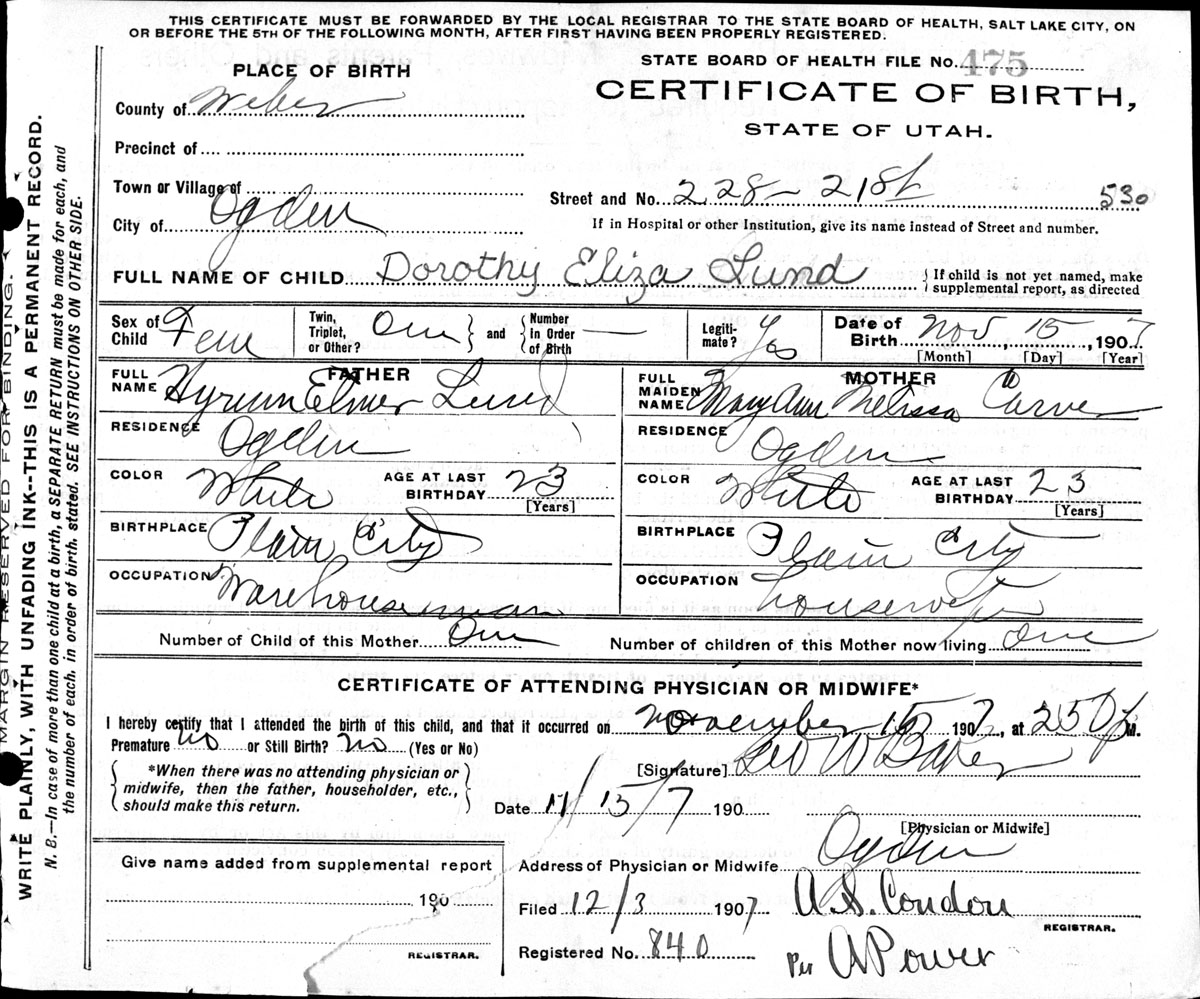 THIS CERTIFICATE MUST BE FORWARDED BY THE LOCAL REGISTRAR TO THE STATE BOARD OF HEALTH, SALT LAKE CITY, ON
OR BEFORE THE 5TH OF THE FOLLOWING MONTH, AFTER FIRST HAVING BEEN PROPERLY REGISTERED.
STATE BOARD OF HEALTH FILE No. 475
PLACE OF BIRTH
CERTIFICATE OF BIRTH,
STATE OF UTAH.
County of Weber
Precinct of
Town or Village of
Street and No. 228 - 21st 530
City of Ogden
If in Hospital or other Institution, give its name instead of Street and number.
FULL NAME OF CHILD Dorothy Eliza Lund
If child is not yet named, make
supplemental report, as directed
Sex of Child Fem
Twin, Triplet, or Other? One and Number In Order of Birth —
Legitimate? Yes
Date of Birth Nov, 15, 1907
[Month] [Day] [Year]
FATHER
FULL NAME Hyrum Elmer Lund
RESIDENCE Ogden
COLOR White AGE AT LAST BIRTHDAY 23
[Years]
BIRTHPLACE Plain City
OCCUPATION Warehouseman
MOTHER
FULL MAIDEN NAME Mary Ann Melissa Carver
RESIDENCE Ogden
COLOR White AGE AT LAST BIRTHDAY 23
[Years]
BIRTHPLACE Plain City
OCCUPATION housewife
Number of Child of this Mother One
Number of children of this Mother now living one
CERTIFICATE OF ATTENDING PHYSICIAN OR MIDWIFE*
I hereby certify that I attended the birth of this child, and that it occurred on November 15 1907, at 250 p M.
Premature no or Still Birth? No (Yes or No)
*When there was no attending physician or
midwife, then the father, householder, etc.,
should make this return.
[Signature] Leo W Baker
Date 11/15/7 190
[Physician or Midwife]
Give name added from supplemental report
190
REGISTRAR.
Address of Physician or Midwife Ogden
Filed 12/3 1907 A. S. Condon
REGISTRAR.
Registered No. 840 Per A Power
MARGIN RESERVED FOR BINDING.
WRITE PLAINLY, WITH UNFADING INK--THIS IS A PERMANENT RECORD.
N. B.—In case of more than one child at a birth, a SEPARATE RETURN must be made for each, and
the number of each, in order of birth, stated. SEE INSTRUCTIONS ON OTHER SIDE.